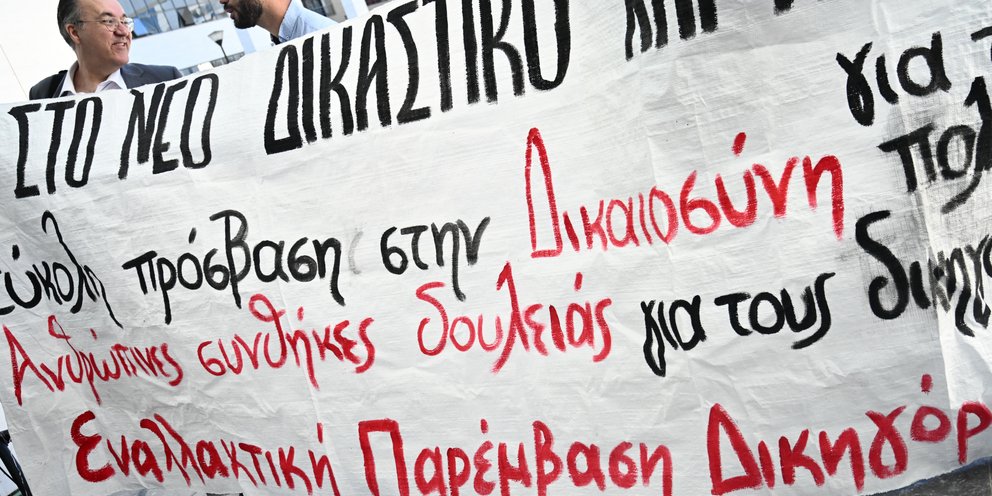 ΣΤΟ ΝΕΟ ΔΙΚΑΣΤΙΚΟ
για
εύκολη πρόσβαση στην Δικαιοσύνη
Ανθρώπινες συνθήκες δουλειάς για τους
Εναλλακτική Παρέμβαση Δικηγόρ